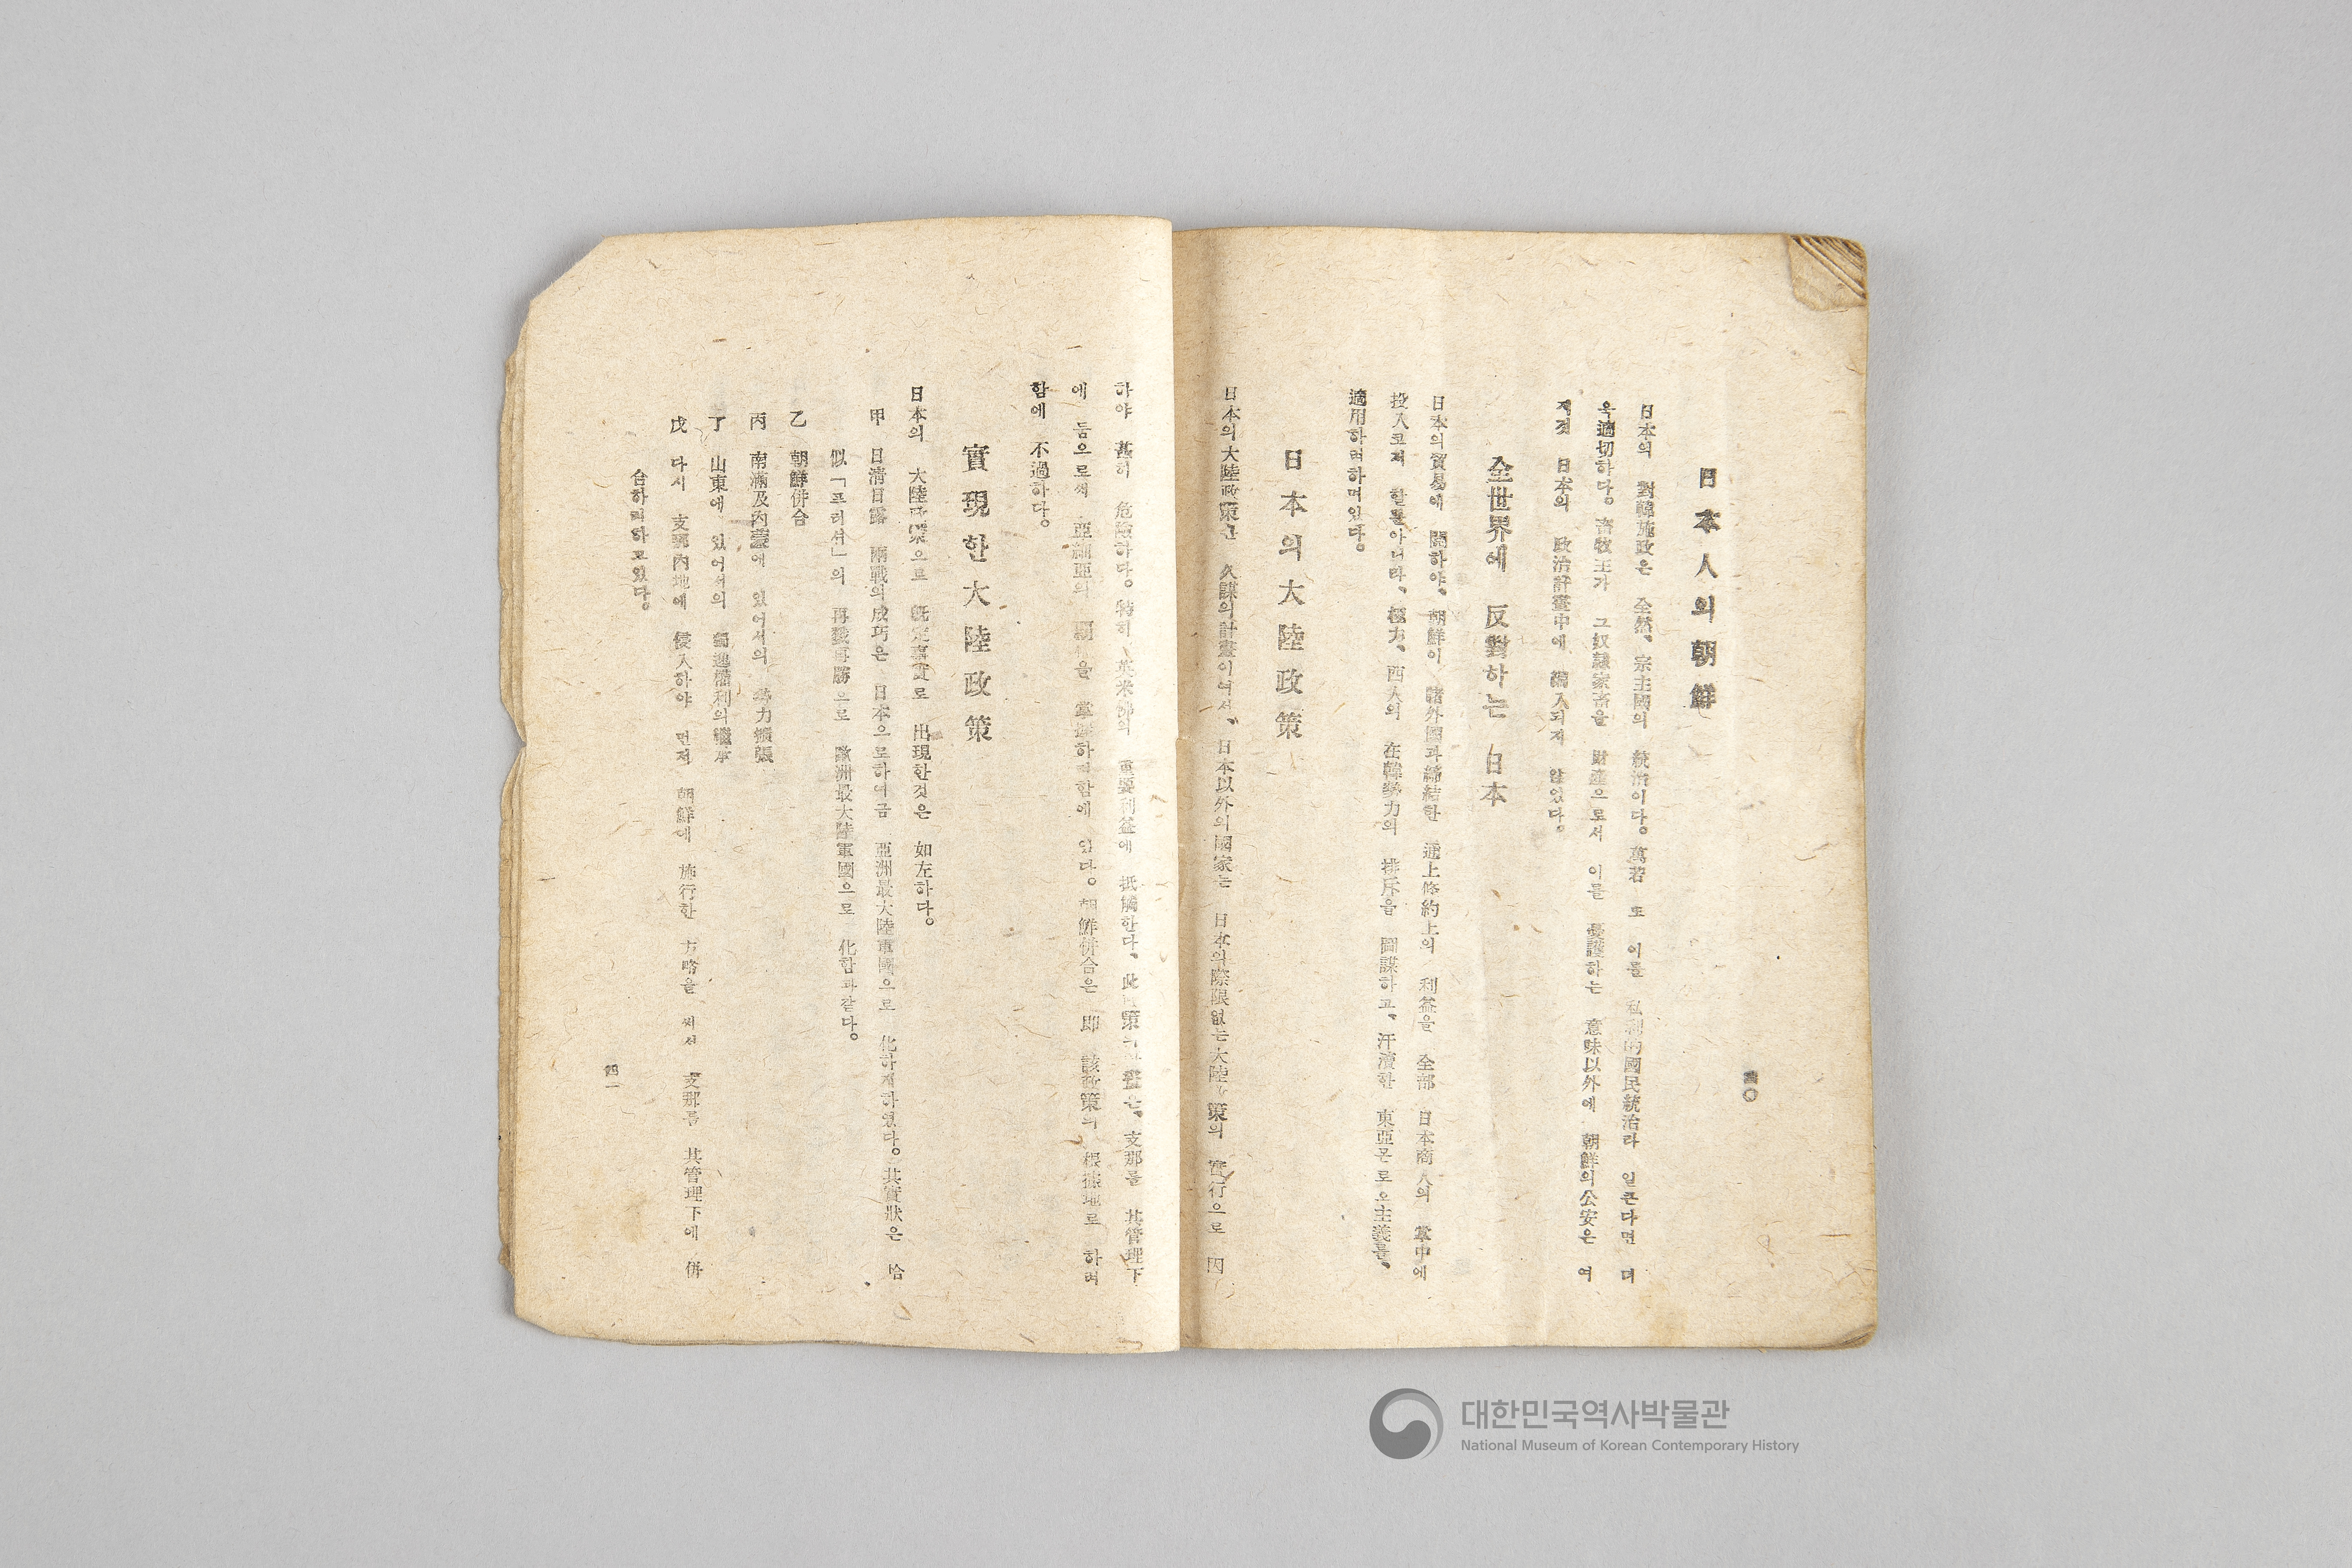 日本人의朝鮮
日本의 對韓施政은 全然、宗主國의 統治이다。萬若 또 이를 私利的國民統治라 일큰다면 더
욱適切하다。畜牧主가 그奴隷家畜을 財産으로서 이를 愛護하는 意味以外에 朝鮮의公安은 여
지껏 日本의 政治計畫中에 編入되지 않었다。
全世界에 反對하는 日本
日本의貿易에 關하야、朝鮮이 諸外國과締結한 通上條約上의 利益을 全部 日本商人의 掌中에
投入코저 할뿐아니라、極力、西人의 在韓勢力의 排斥을 圖謀하고、汗瀆한 東亞몬로오主義를、
適用하려하며있다。
日本의大陸政策
日本의大陸政策은 久謀의計畫이여서、日本以外의國家는 日本의際限없는大陸政策의 實行으로 因
四〇
하야 甚히 危險하다。特히、英米佛의 重要利益에 抵觸한다、此政策의 는、支那를 其管理下
에 둠으로써 亞細亞의 覇權을 掌握하려함에 있다。朝鮮併合은 即 該政策의 根據地로 하려
함에 不過하다。
實現한大陸政策
日本의 大陸政策으로 旣定事實로 出現한것은 如左하다。
甲 日淸日露 兩戰의成功은 日本으로하여금 亞洲最大陸軍國으로 化하게하였다。其實狀은 恰
似「프러서」의 再戰再勝으로 歐洲最大陸軍國으로 化함과같다。
乙 朝鮮併合
丙 南滿及內蒙에 있어서의 勢力擴張
丁 山東에 있어서의 獨逸權利의繼承
戊 다시 支那內地에 侵入하야 먼저 朝鮮에 施行한 方略을 써서 支那를 其管理下에 併
合하려하고있다。
四一
대한민국역사박물관
National Museum of Korean Contemporary History